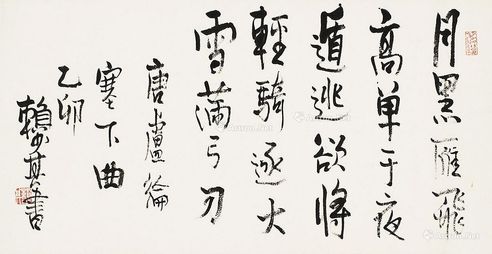 月黑雁飛
高單于夜
遁逃欲將
輕騎逐大
雪滿弓刀
唐盧綸
塞下曲
乙卯
賴少其書